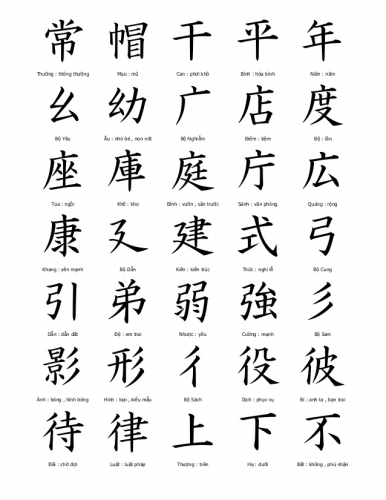 常 帽 干 平 年
Thường : thông thường Mạo : mũ Can : phơi khô Bình : hòa bình Niên : năm
幺 幼 广 店 度
Bộ Yêu Ấu : nhỏ bé , non nớt Bộ Nghiễm Điếm : tiệm Độ : lần
座 庫 庭 庁 広
Tọa : ngồi Khố : kho Đình : vườn , sân trước Sảnh : văn phòng Quảng : rộng
康 廴 建 式 弓
Khang : yên mạnh Bộ Dẫn Kiến : kiến trúc Thức : nghi lễ Bộ Cung
引 弟 弱 強 彡
Dẫn : dẫn dắt Đệ : em trai Nhược : yếu Cường : mạnh Bộ Sam
影 形 彳 役 彼
Ảnh : bóng , hình bóng Hình : loại , kiểu mẫu Bộ Sách Dịch : phục vụ Bỉ : anh ta , bạn trai
待 律 上 下 不
Đãi : chờ đợi Luật : luật pháp Thượng : trên Hạ : dưới Bất : không , phủ nhận